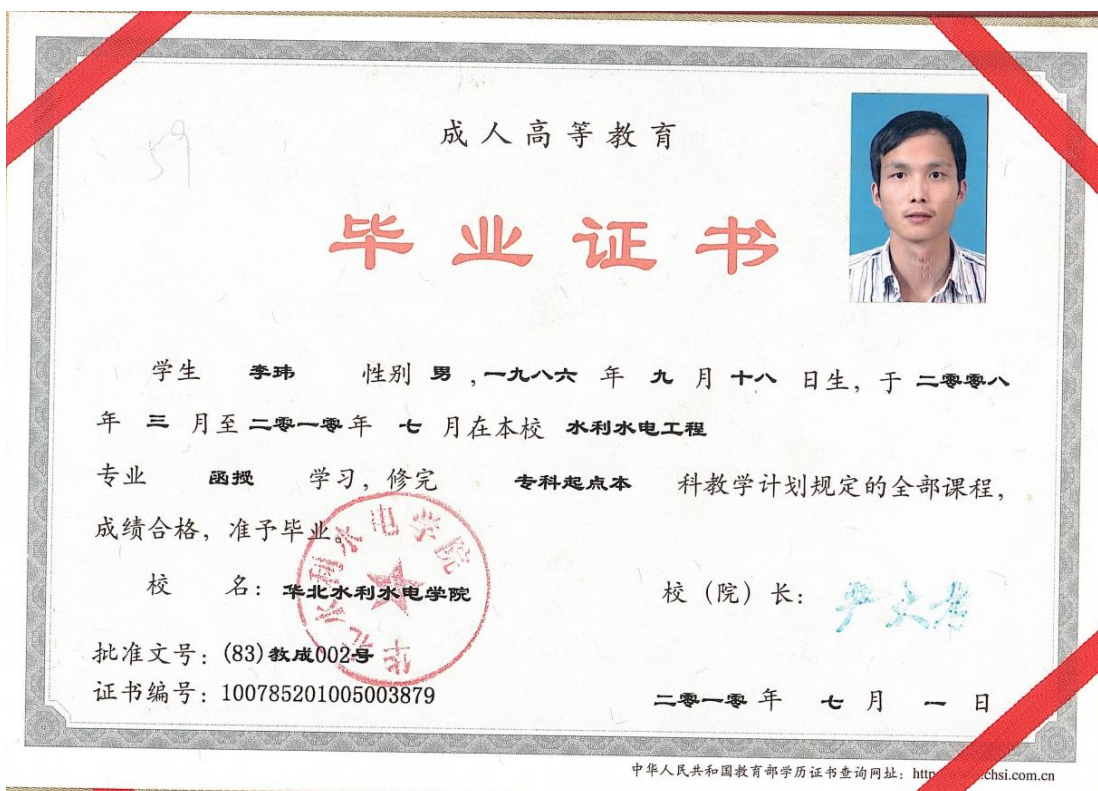 59
成人高等教育
毕业证书
学生 李玮 性别 男 ,一九八六 年 九 月 十八 日生, 于 二零零八
年 三 月至 二零一零 年 七 月在本校 水利水电工程
专业 函授 学习, 修完 专科起点本 科教学计划规定的全部课程,
成绩合格, 准予毕业。
校 名: 华北水利水电学院
校 (院) 长: 严大考
华北水利水电学院
批准文号: (83)教成002号
证书编号: 100785201005003879
二零一零 年 七 月 一 日
中华人民共和国教育部学历证书查询网址: http chsi.com.cn